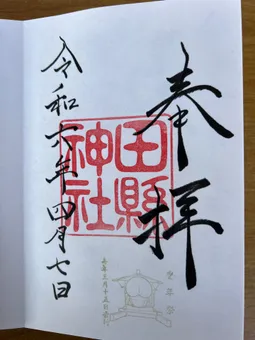 奉拝
田縣
神社
令和六年四月七日